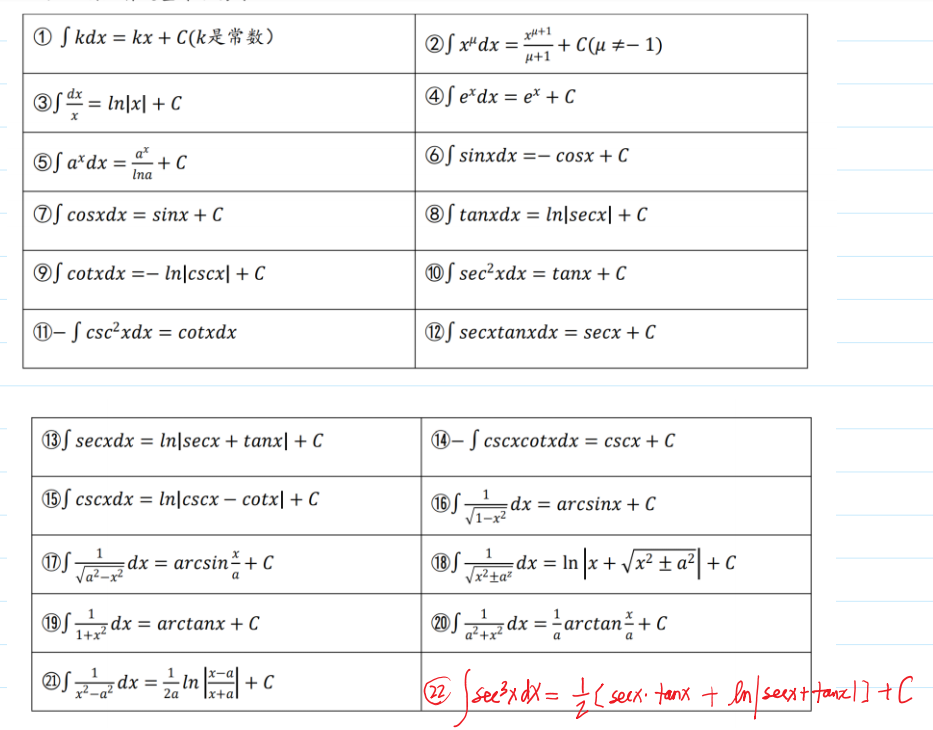 ① ∫ kdx = kx + C(k是常数)
②∫ x^μ dx = x^(μ+1)/(μ+1) + C(μ ≠− 1)
③∫ dx/x = ln|x| + C
④∫ e^x dx = e^x + C
⑤∫ a^x dx = a^x/lna + C
⑥∫ sinxdx =− cosx + C
⑦∫ cosxdx = sinx + C
⑧∫ tanxdx = ln|secx| + C
⑨∫ cotxdx =− ln|cscx| + C
⑩∫ sec²xdx = tanx + C
⑪− ∫ csc²xdx = cotxdx
⑫∫ secxtanxdx = secx + C
⑬∫ secxdx = ln|secx + tanx| + C
⑭− ∫ cscxcotxdx = cscx + C
⑮∫ cscxdx = ln|cscx − cotx| + C
⑯∫ 1/√(1−x²) dx = arcsinx + C
⑰∫ 1/√(a²−x²) dx = arcsin x/a + C
⑱∫ 1/√(x²±a²) dx = ln |x + √(x² ± a²)| + C
⑲∫ 1/(1+x²) dx = arctanx + C
⑳∫ 1/(a²+x²) dx = 1/a arctan x/a + C
㉑∫ 1/(x²−a²) dx = 1/2a ln |(x−a)/(x+a)| + C
㉒ ∫sec³xdx = 1/2 [secx·tanx + ln|secx+tanx|] + C